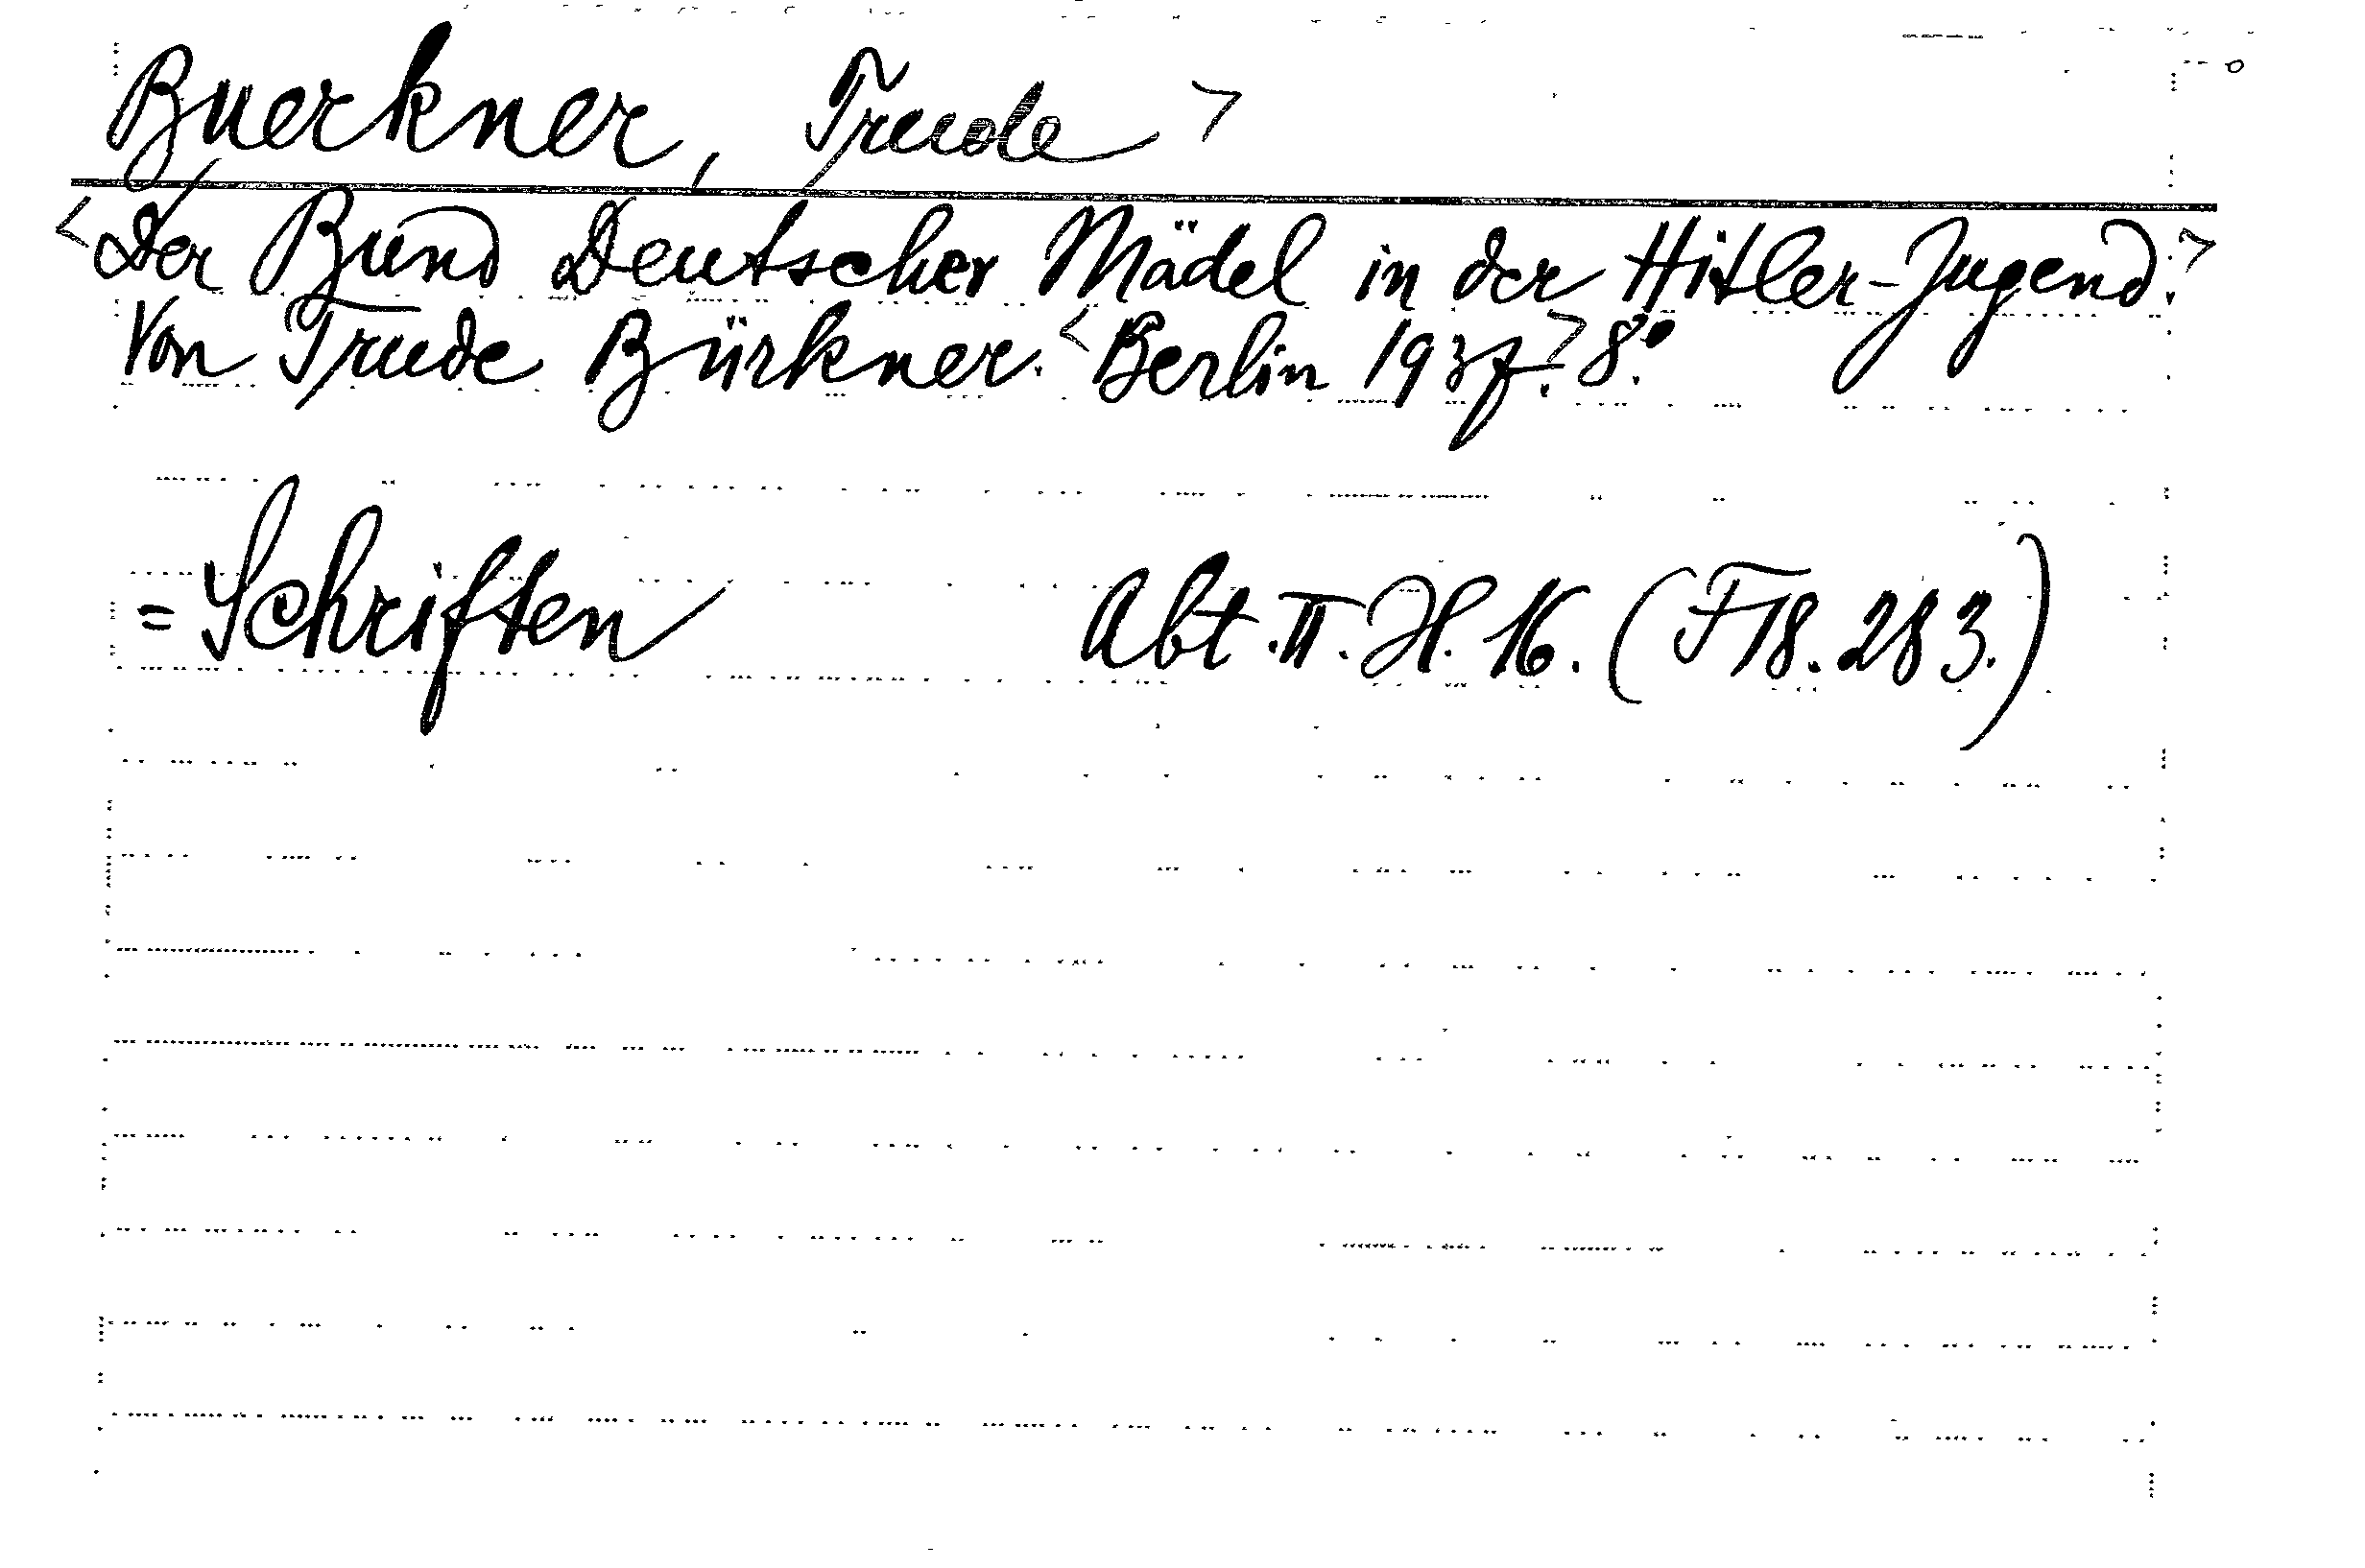 Buerkner, Trude >
<Der Bund Deutscher Mädel in der Hitler-Jugend.>
Von Trude Bürkner. <Berlin 1937.> 8º.
=Schriften Abt. II. H. 16. (F18. 283.)